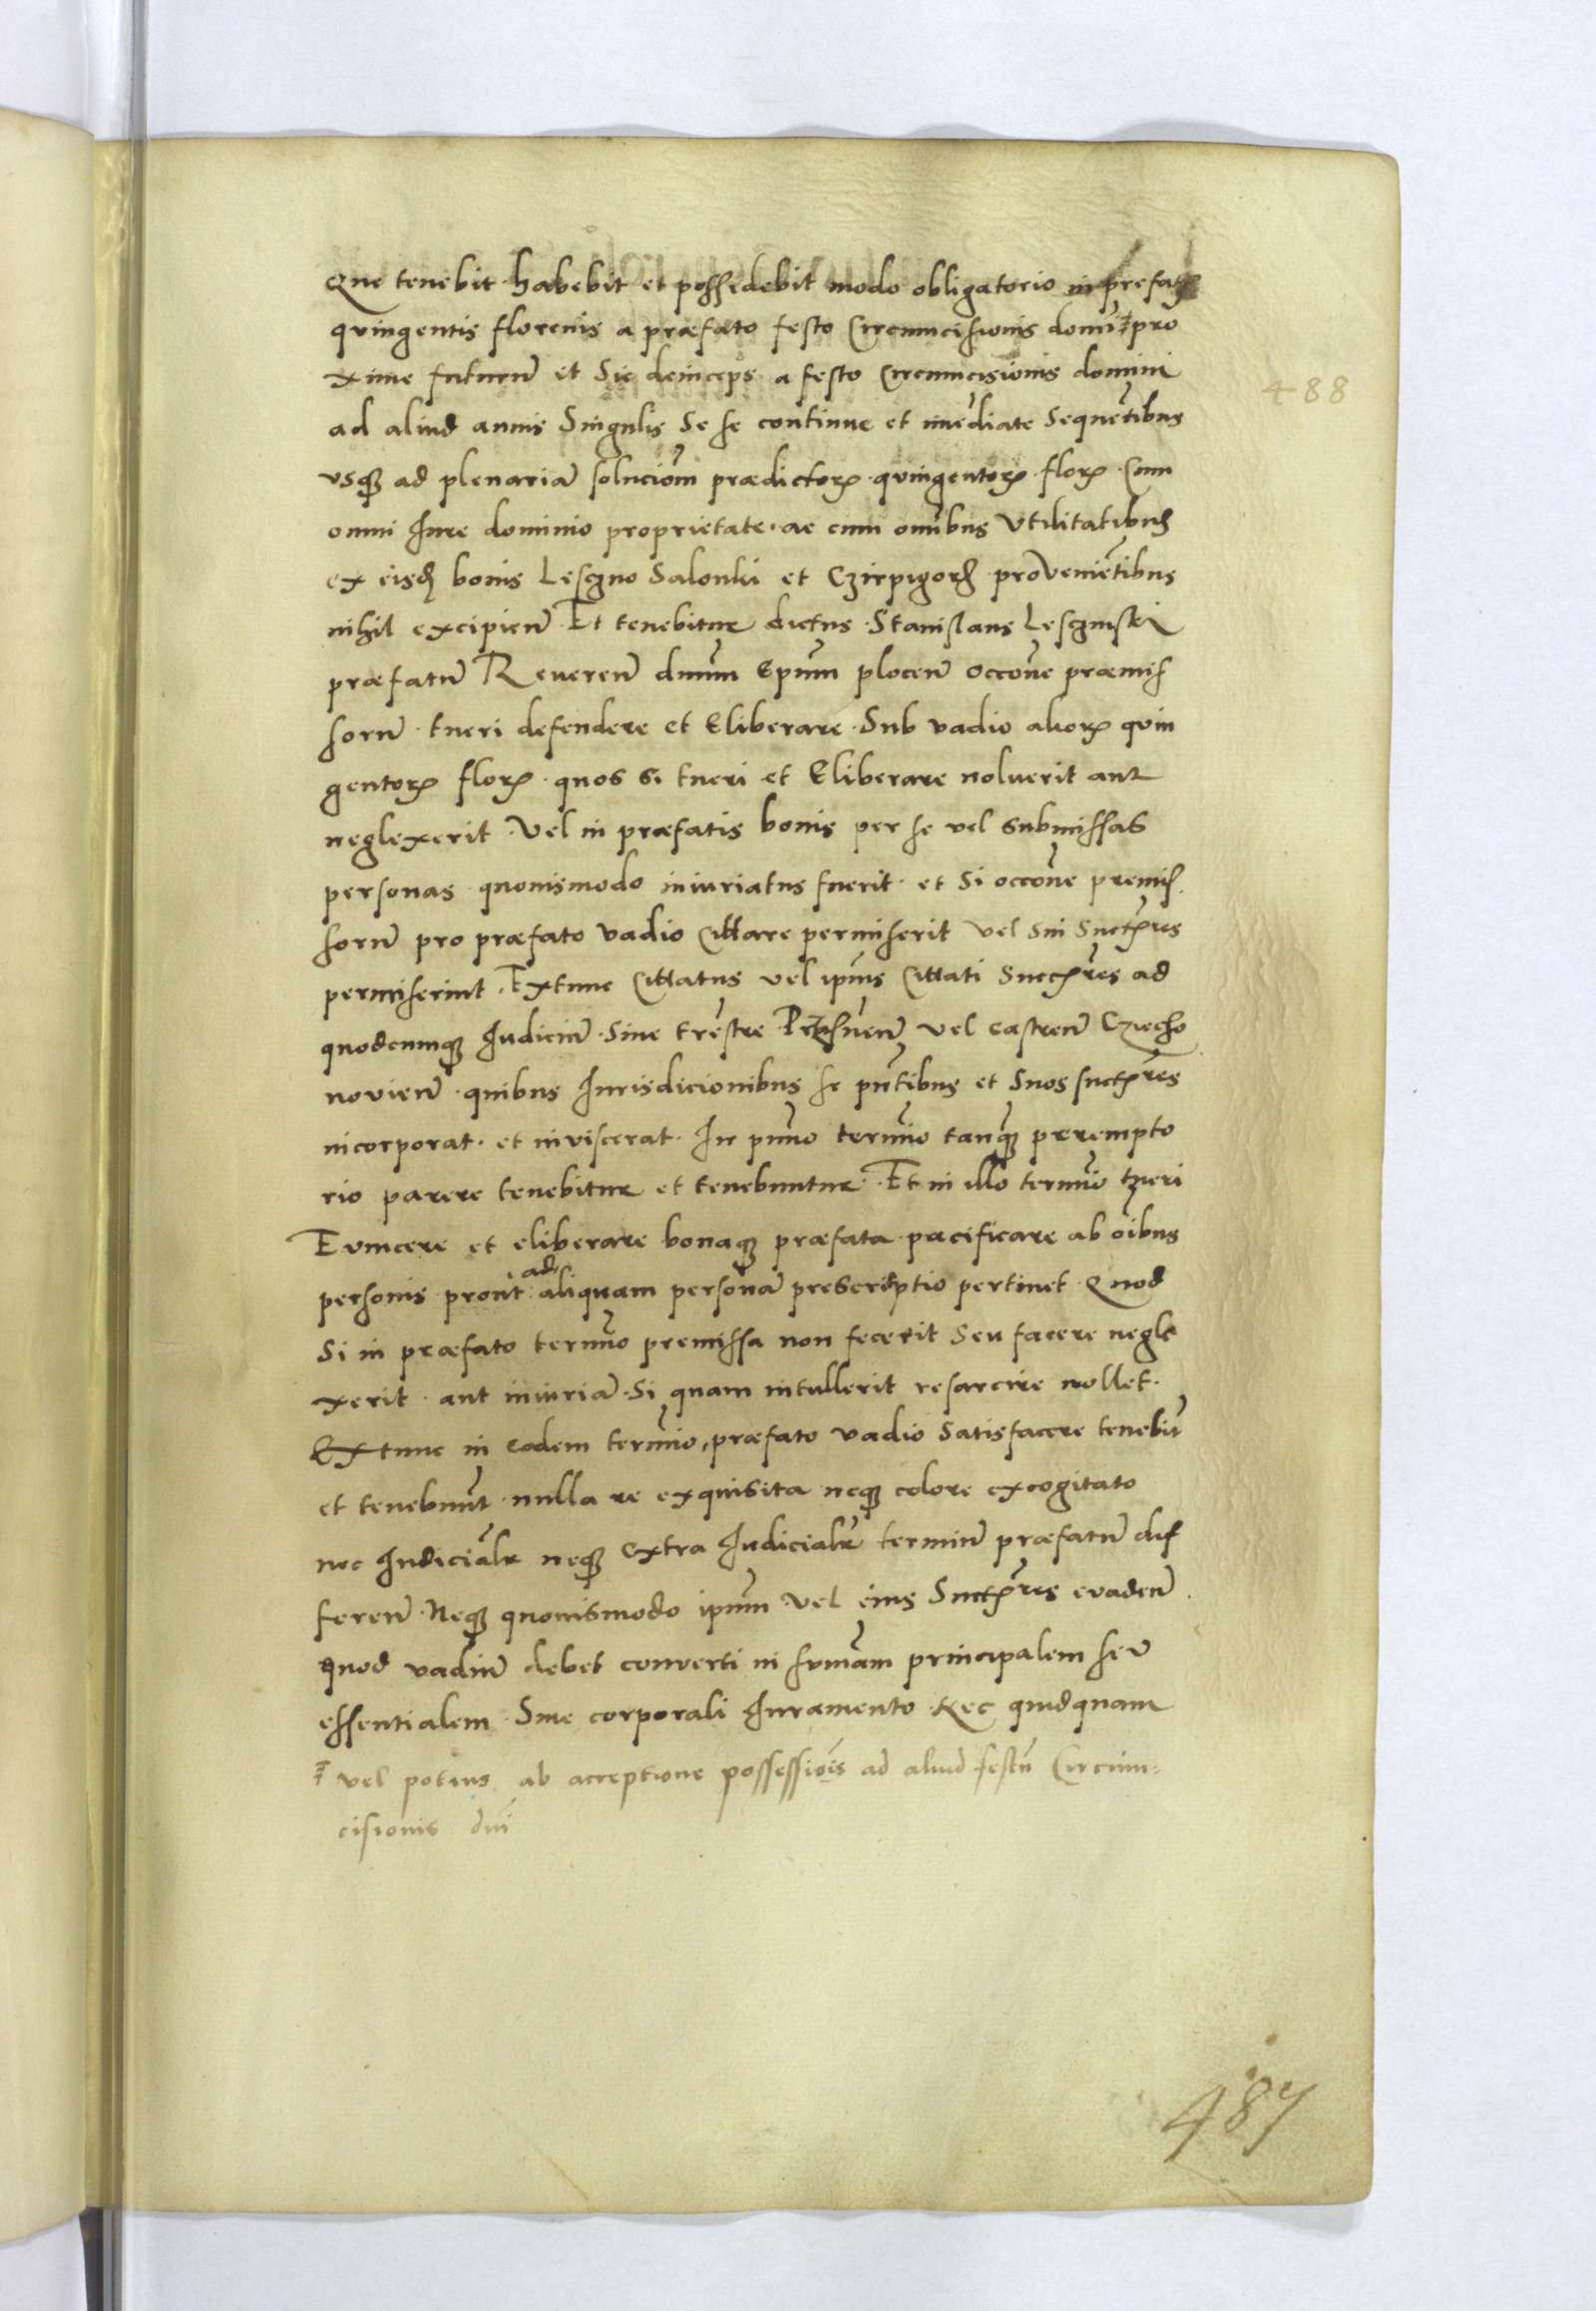 Que tenebit habebit et possedebit modo obligatorio in prefatis
quingentis florenis a præfato festo Circumcisionis domini pro
xime futurũ et Sic deinceps a festo Circumcisionis domini
488
ad aliud annis Singulis Se se continue et imẽdiate Sequẽtibus
vsqȝ ad plenariã soluciõm prædictorꝝ quingentorꝝ florꝝ Cum
omni Iure dominio proprietate ac cum omĩbus Vtilitatibus
ex eisdẽ bonis Lesczno Salonki et Czirpigorz proveniẽtibus
nihil excipienđ Et tenebitur dictus Stanislaus Lesczinski
præfatũ Reuerenđ dnũm Epũm plocenš occõne præmis
sorũ tueri defendere et Eliberare Sub vadio aliorꝝ quin
gentorꝝ florꝝ quos si tueri et Eliberare noluerit aut
neglexerit Vel in præfatis bonis per se vel submissas
personas quouismodo iniuriatus fuerit et Si occõne premis
sorũ pro præfato vadio Cittare permiserit vel sui Suctꝑres
permiserint Extunc Cittatus vel ipĩus Cittati Succꝑres ad
quodcumqȝ Iudiciũ Siue trẽstre Przasnenš vel castrenš Cziecho
novienš quibus Iurisdicionibus se pñtibus et Suos suctꝑres
incorporat et inviscerat In pĩmo termĩo tanqȝ perempto
rio parere tenebitur et tenebuntur Et in illo termĩo tueri
Euincere et eliberare bonaqȝ præfata pacificare ab oĩbus
personis prout ad aliquam personã prescriptio pertinet Quod
Si in præfato termĩo premissa non fecerit Seu facere negle
xerit aut iniuriã Si quam intullerit resarcire nollet
Extunc in eodem termĩo præfato vadio Satisfacere tenebit̃
et tenebunt̃ nulla re exquisita neqȝ colore excogitato
nec Iudiciãlr neqȝ Extra Iudicialr̃ terminũ præfatũ dif
ferenđ Neqȝ quouismodo ipũm vel eius Suctꝑres evadenđ
Quod vadiũ debet converti in sũmam principalem seũ
essentialem Sine corporali Iuramento Nec quidquam
vel potius ab acceptione possessiõis ad aliud festũ Circum:
cisionis dnĩ
487